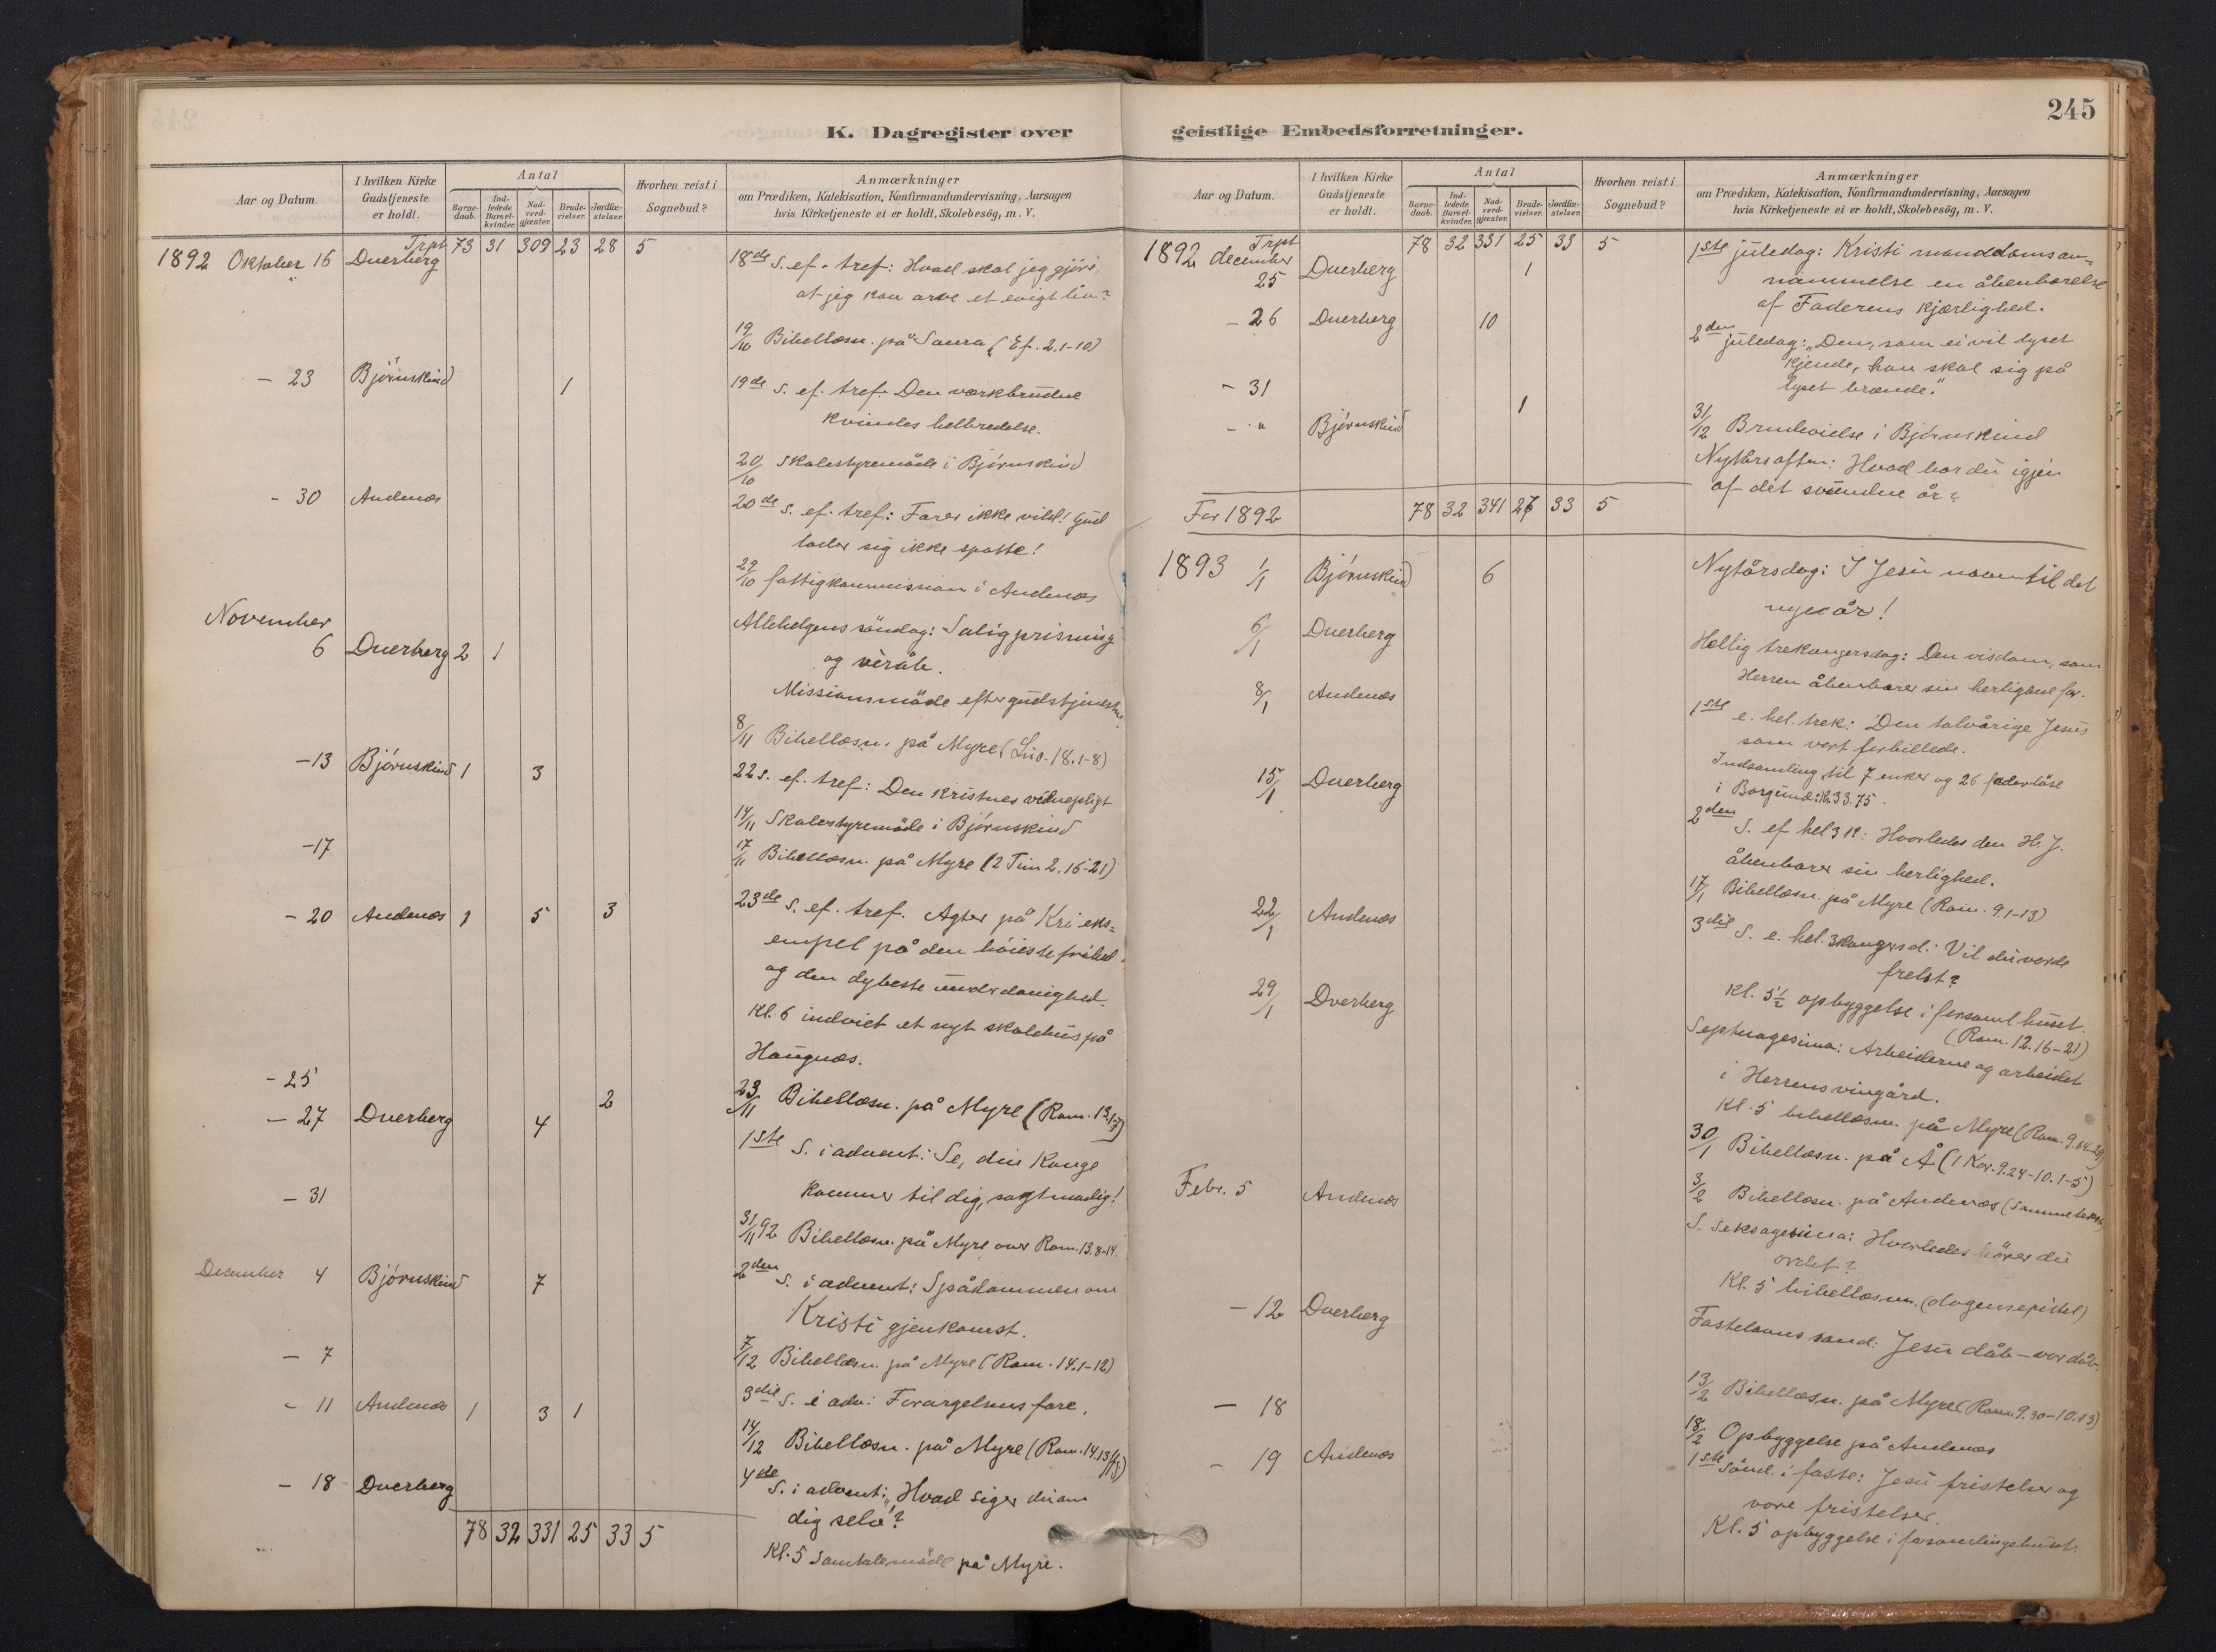 K. Dagregister over
Aar og Datum.
I hvilken Kirke Gudstjeneste er holdt.
Antal
Barne-daab.
Ind-ledede Barsel-kvinder.
Nad-verd-gjester.
Brude-vielser.
Jordfæ-stelser.
Hvorhen reist i Sognebud?
Anmærkninger
om Prædiken, Katekisation, Konfirmandundervisning, Aarsagen
hvis Kirketjeneste ei er holdt, Skolebesög, m. V.
Trpt 73 31 309 23 28 5
1892 Oktober 16 Dverberg 18de S. ef. tref: Hvad skal jeg gjöre,
at jeg kan arve et evigt liv?
19/10 Bibellæsn. på Saura (Ef. 2.1-10)
- 23 Björnskind 1 19de s. ef. tref. Den værkbrudne
kvindes helbredelse.
20/10 Skolestyremöde i Björnskind
- 30 Andenæs 20de s. ef. tref.: Farer ikke vild! Gud
lader sig ikke spotte!
29/10 fattigkommission i Andenæs
November
6 Dverberg 2 1 Allehelgens söndag: Saligprisning
og veråb.
Missionsmöde efter gudstjenesten
8/11 Bibellæsn. på Myre (Luc. 18.1-8)
-13 Björnskind 1 3 22 s. ef. tref: Den kristnes vidnepligt
14/11 Skolestyremöde i Björnskind
-17 17/11 Bibellæsn. på Myre (2 Tim 2.16-21)
- 20 Andenæs 1 5 3 23de s. ef. tref. Agter på Kri eks=
empel på den höieste frihed
og den dybeste underdanighed.
Kl. 6 indviet et nyt skolehus på
Haugnæs.
- 25 2 23/11 Bibellæsn. på Myre (Rom. 13.1-7)
- 27 Dverberg 4 1ste S. i advent: Se, din Konge
kommer til dig, sagtmodig!
- 31 31/11 92 Bibellæsn. på Myre over Rom. 13.8-14.
December 4 Björnskind 7 2den S. i advent: Spådommen om
Kristi gjenkomst.
- 7 7/12 Bibellæsn. på Myre (Rom. 14.1-12)
- 11 Andenæs 1 3 1 3die S. i adv: Forargelsens fare.
14/12 Bibellæsn. på Myre (Rom. 14.13 ffg)
- 18 Dverberg 4de S. i advent: "Hvad siger du om
dig selv"?
78 32 331 25 33 5
Kl. 5 Samtalemöde på Myre.
geistlige Embedsforretninger.
245
Aar og Datum.
I hvilken Kirke Gudstjeneste er holdt.
Antal
Barne-daab.
Ind-ledede Barsel-kvinder.
Nad-verd-gjester.
Brude-vielser.
Jordfæ-stelser.
Hvorhen reist i Sognebud?
Anmærkninger
om Prædiken, Katekisation, Konfirmandundervisning, Aarsagen
hvis Kirketjeneste ei er holdt, Skolebesög, m. V.
Trpt 78 32 331 25 33 5
1892 december 25 Dverberg 1 1ste juledag: Kristi manddomsan=
nammelse en åbenbarelse
af Faderens kjærlighed.
- 26 Dverberg 10 2den juledag: "Den, som ei vil lyset
kjende, han skal sig på
lyset brænde."
- 31
- " Björnskind 1 31/12 Brudevielse i Björnskind
Nytårsaften: Hvad har du igjen
af det svundne år?
For 1892 78 32 341 27 33 5
1893 1/1 Björnskind 6 Nytårsdag: I Jesu navn til det
nye år!
6/1 Dverberg Hellig trekongersdag: Den visdom, som
Herren åbenbarer sin herlighed for.
8/1 Andenæs 1ste e. hel. trek: Den tolvårige Jesus
som vort forbillede.
Indsamling til 7 enker og 26 faderlöse
i Borgund: Kr. 33.75.
15/1 Dverberg 2den S. ef hel 3 K: Hvorledes den H. J.
åbenbarer sin herlighed.
17/1 Bibellæsn. på Myre (Rom. 9.1-13)
22/1 Andenæs 3die S. e. hel. 3kongersd: Vil du vorde
frelst?
Kl. 5½ opbyggelse i forsaml huset.
(Rom. 12.16-21)
29/1 Dverberg Septuagesima: Arbeiderne og arbeidet
i Herrens vingård.
Kl. 5 bibellæsn. på Myre (Rom. 9.14-29)
30/1 Bibellæsn. på Å (1 Kor. 9.24-10.1-5)
3/2 Bibellæsn. på Andenæs (Samme tekst)
Febr. 5 Andenæs S. Seksagesima: Hvorledes hörer du
ordet?
Kl. 5 bibellæsn. (dagens epistel)
- 12 Dverberg Fastelavns sönd: Jesu dåb - vor dåb.
13/2 Bibellæsn. på Myre (Rom. 9.30-10.13)
- 18 18/2 Opbyggelse på Andenæs
- 19 Andenæs 1ste Sönd. i faste: Jesu fristelser og
vore fristelser.
Kl. 5 opbyggelse i forsamlingshuset.